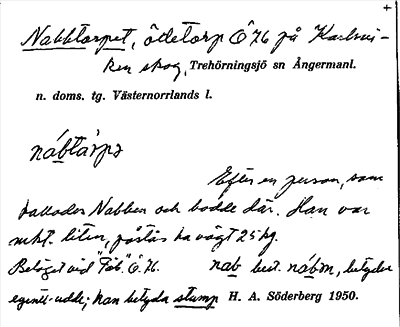 +
Nabbtorpet, ödetorp Ö 76 på Karlsvi-
ken skog, Trehörningsjö sn Ångermanl.
n. doms. tg. Västernorrlands l.
nábtàrpə
Efter en person, som
kallades Nabben och bodde där. Han var
mkt. liten, påstås ha vägt 25 kg.
Beläget vid "Fäb." Ö. 76. nab best. nábm, betyder
egentl. udde; kan betyda stump H. A. Söderberg 1950.